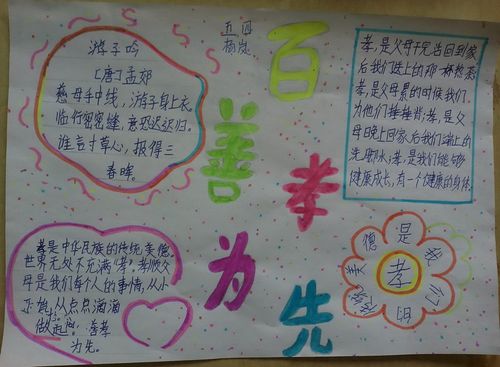 游子吟
[唐]孟郊
慈母手中线，游子身上衣
临行密密缝，意恐迟迟归。
谁言寸草心，报得三
春晖。
五四
百善孝为先
孝，是父母干完活回到家
后我们送上的那一杯热茶
孝，是父母累的时候我们
为他们捶捶背；孝，是父
母晚上回家后我们端上的
洗脚水；孝，是我们能够
健康成长，有一个健康的身体
善是中华民族的传统美德。
世界无处不充满“孝”。孝顺父
母是我们每个人的事情，从小
从点点滴滴
做起 善孝
为先。
孝
是我们的传统美德